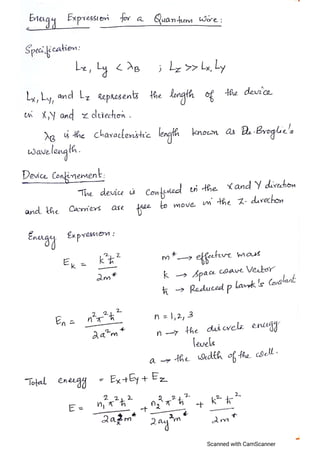 Energy Expression for a Quantum Wire:
Specification:
Lx, Ly < λB ; Lz >> Lx, Ly
Lx, Ly, and Lz represents the length of the device
in X, Y and Z direction.
λB is the characteristic length known as De-Broglie's
wavelength.
Device Confinement:
The device is confined in the X and Y direction
and the carriers are free to move in the Z-direction
Energy Expression:
E_k = k²ħ² / 2m*
m* → effective mass
k → space wave vector
ħ → Reduced plank's constant
E_n = n²π²ħ² / 2a²m*
n = 1, 2, 3
n → the discrete energy
levels
a → the width of the well.
Total energy = Ex + Ey + Ez
E = n₁²π²ħ² / 2ax²m* + n₂²π²ħ² / 2ay²m* + k²ħ² / 2m*
Scanned with CamScanner